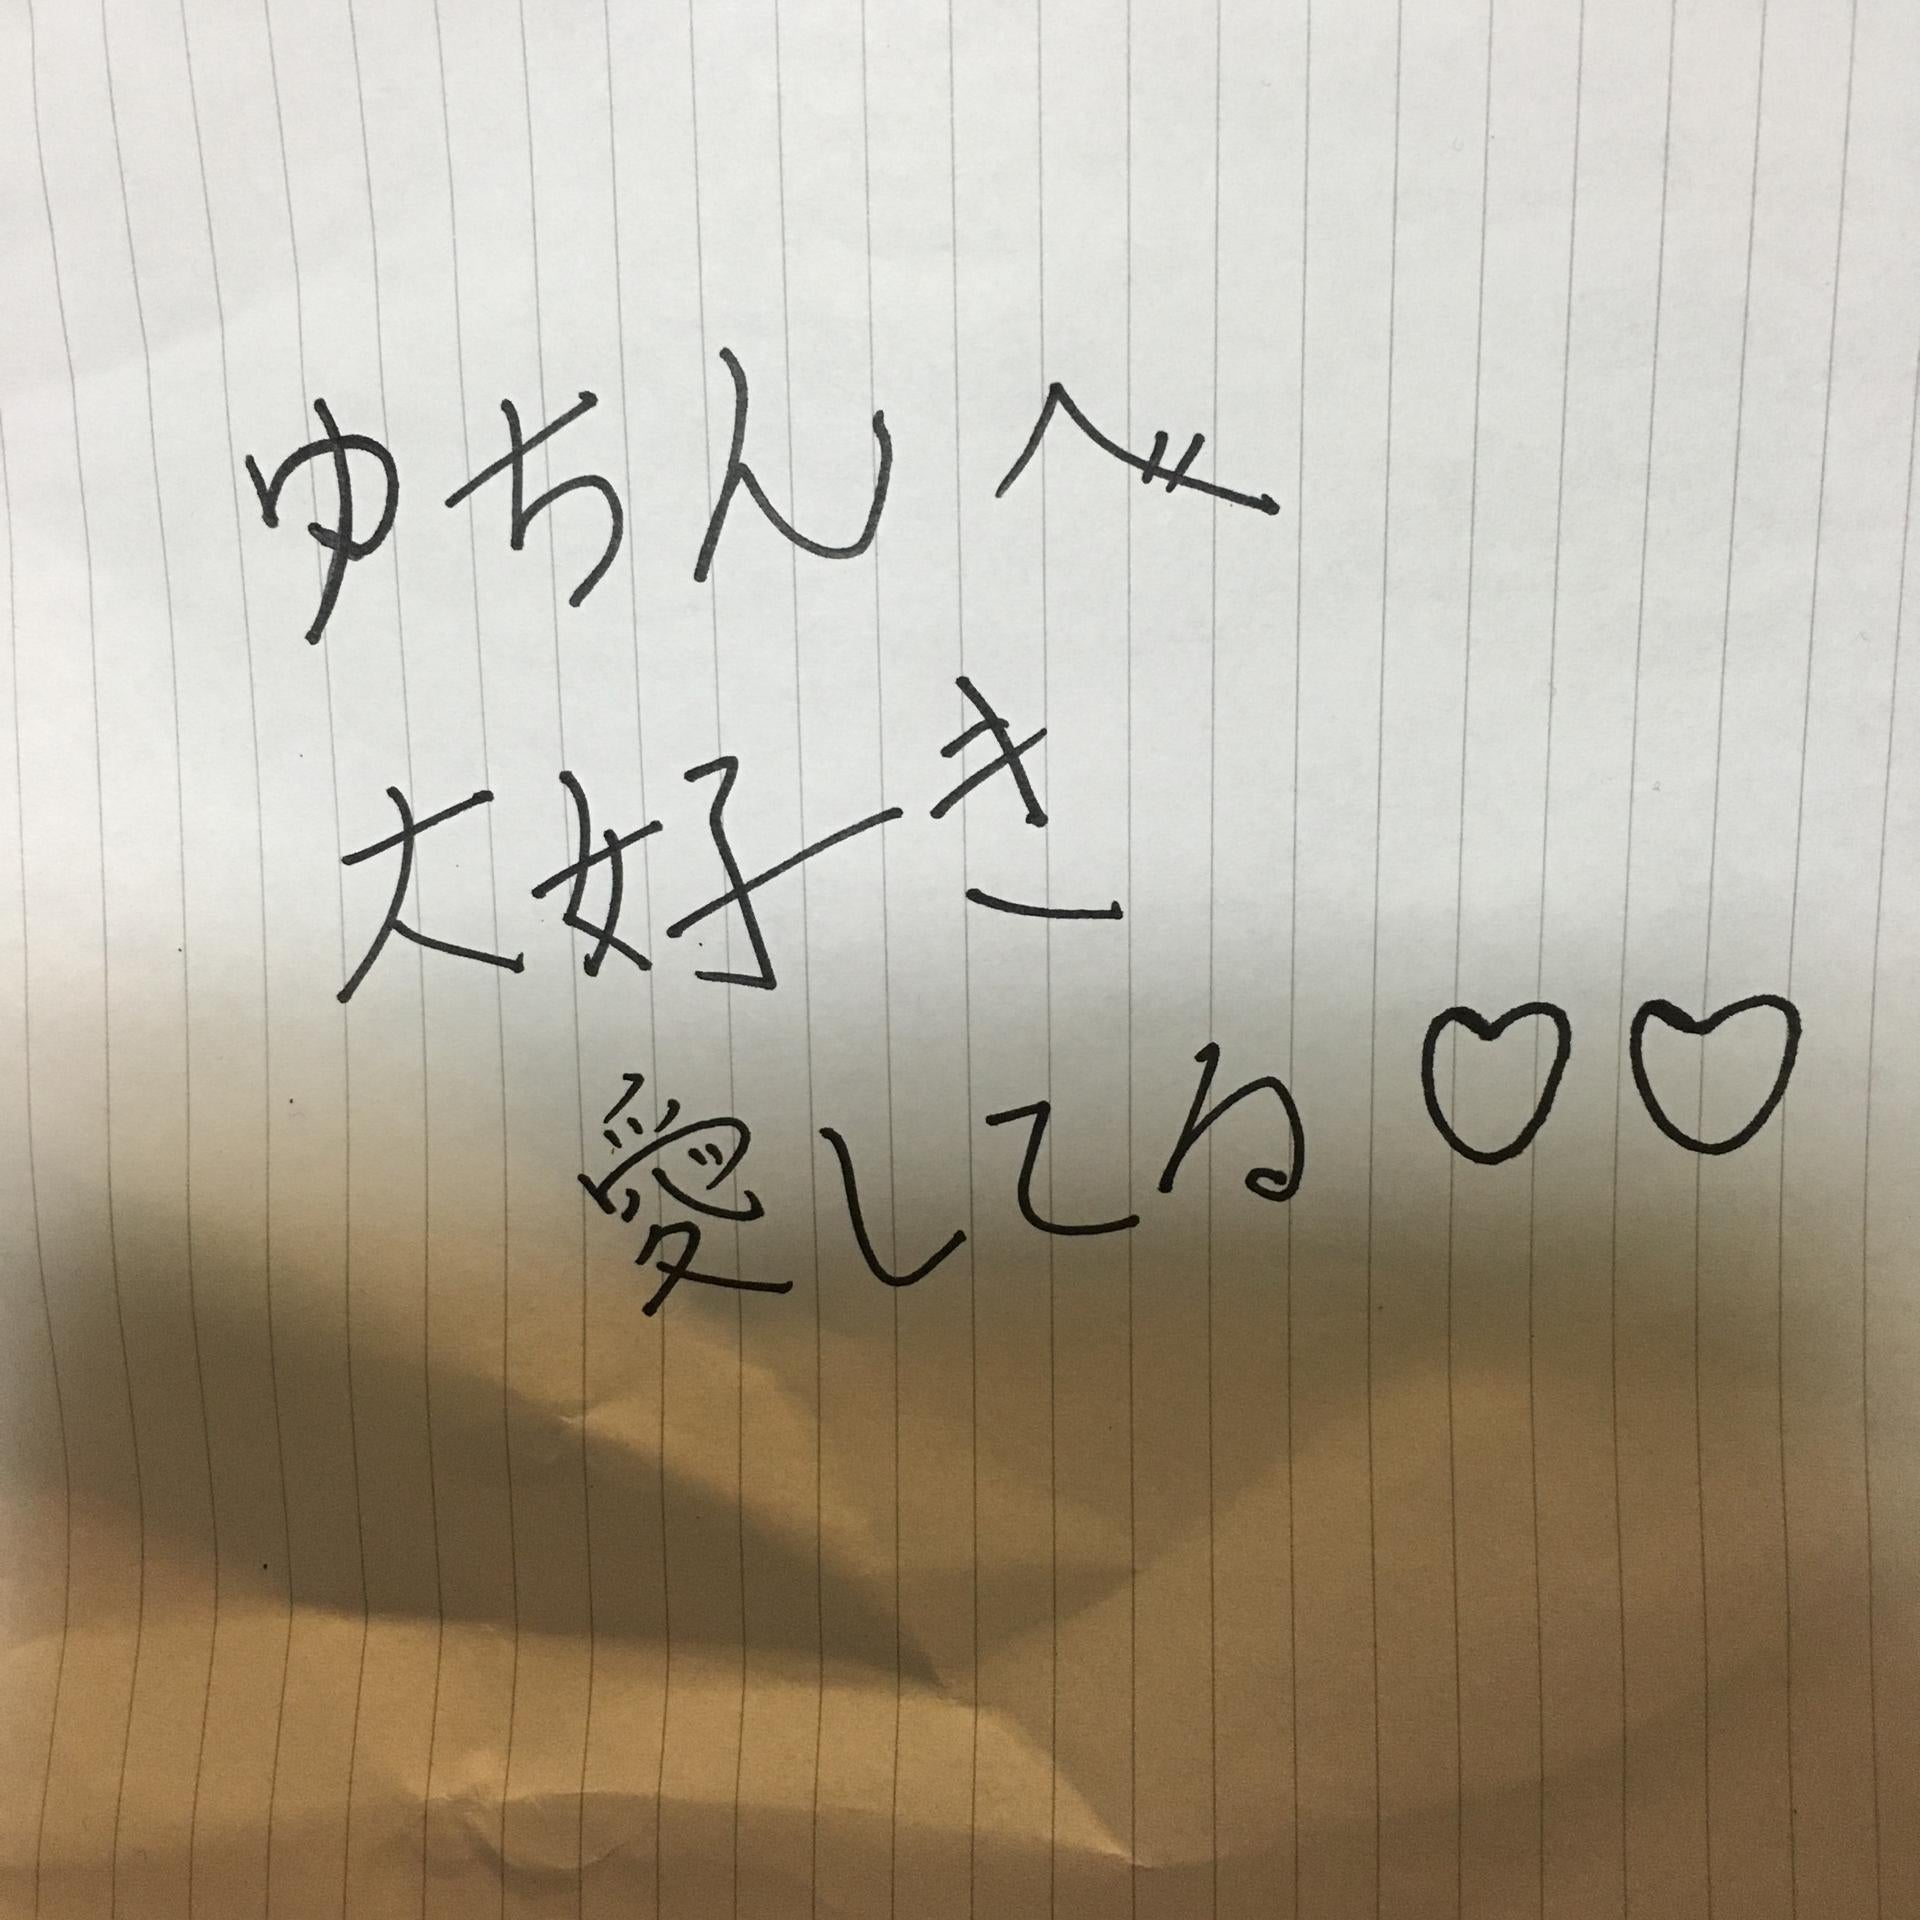 ゆちんへ
大好き
愛してる♡♡